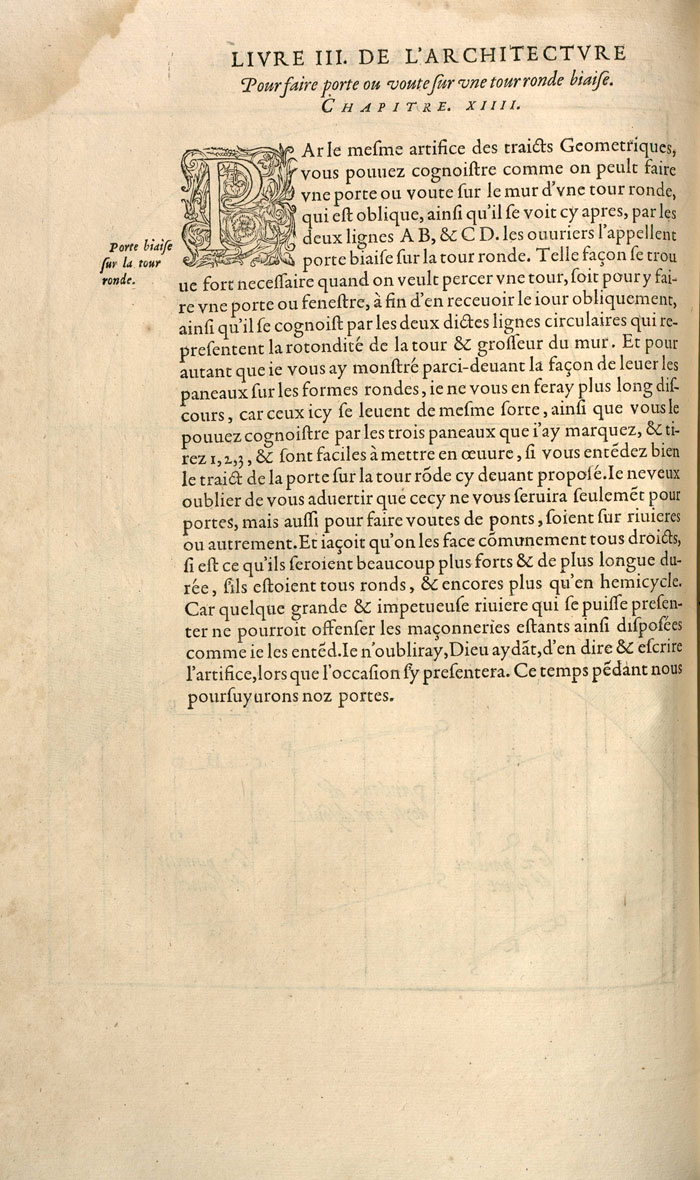 LIVRE III. DE L'ARCHITECTVRE
Pour faire porte ou voute ſur vne tour ronde biaiſe.
CHAPITRE. XIIII.
PAr le meſme artifice des traicts Geometriques,
vous pouuez cognoiſtre comme on peult faire
vne porte ou voute ſur le mur d'vne tour ronde,
qui eſt oblique, ainſi qu'il ſe voit cy apres, par les
deux lignes A B, & C D. les ouuriers l'appellent
porte biaiſe ſur la tour ronde. Telle façon ſe trou
Porte biaiſe
ſur la tour
ronde.
ue fort neceſſaire quand on veult percer vne tour, ſoit pour y fai-
re vne porte ou feneſtre, à fin d'en receuoir le iour obliquement,
ainſi qu'il ſe cognoiſt par les deux dictes lignes circulaires qui re-
preſentent la rotondité de la tour & groſſeur du mur. Et pour
autant que ie vous ay monſtré parci-deuant la façon de leuer les
paneaux ſur les formes rondes, ie ne vous en feray plus long diſ-
cours, car ceux icy ſe leuent de meſme ſorte, ainſi que vous le
pouuez cognoiſtre par les trois paneaux que i'ay marquez, & ti-
rez 1, 2, 3, & ſont faciles à mettre en œuure, ſi vous entẽdez bien
le traict de la porte ſur la tour rõde cy deuant propoſé. Ie ne veux
oublier de vous aduertir que cecy ne vous ſeruira ſeulemẽt pour
portes, mais auſſi pour faire voutes de ponts, ſoient ſur riuieres
ou autrement. Et iaçoit qu'on les face cõmunement tous droicts,
ſi eſt ce qu'ils ſeroient beaucoup plus forts & de plus longue du-
rée, ſils eſtoient tous ronds, & encores plus qu'en hemicycle.
Car quelque grande & impetueuſe riuiere qui ſe puiſſe preſen-
ter ne pourroit offenſer les maçonneries eſtants ainſi diſpoſées
comme ie les entẽd. Ie n'oubliray, Dieu aydãt, d'en dire & eſcrire
l'artifice, lors que l'occaſion ſy preſentera. Ce temps pẽdant nous
pourſuyurons noz portes.